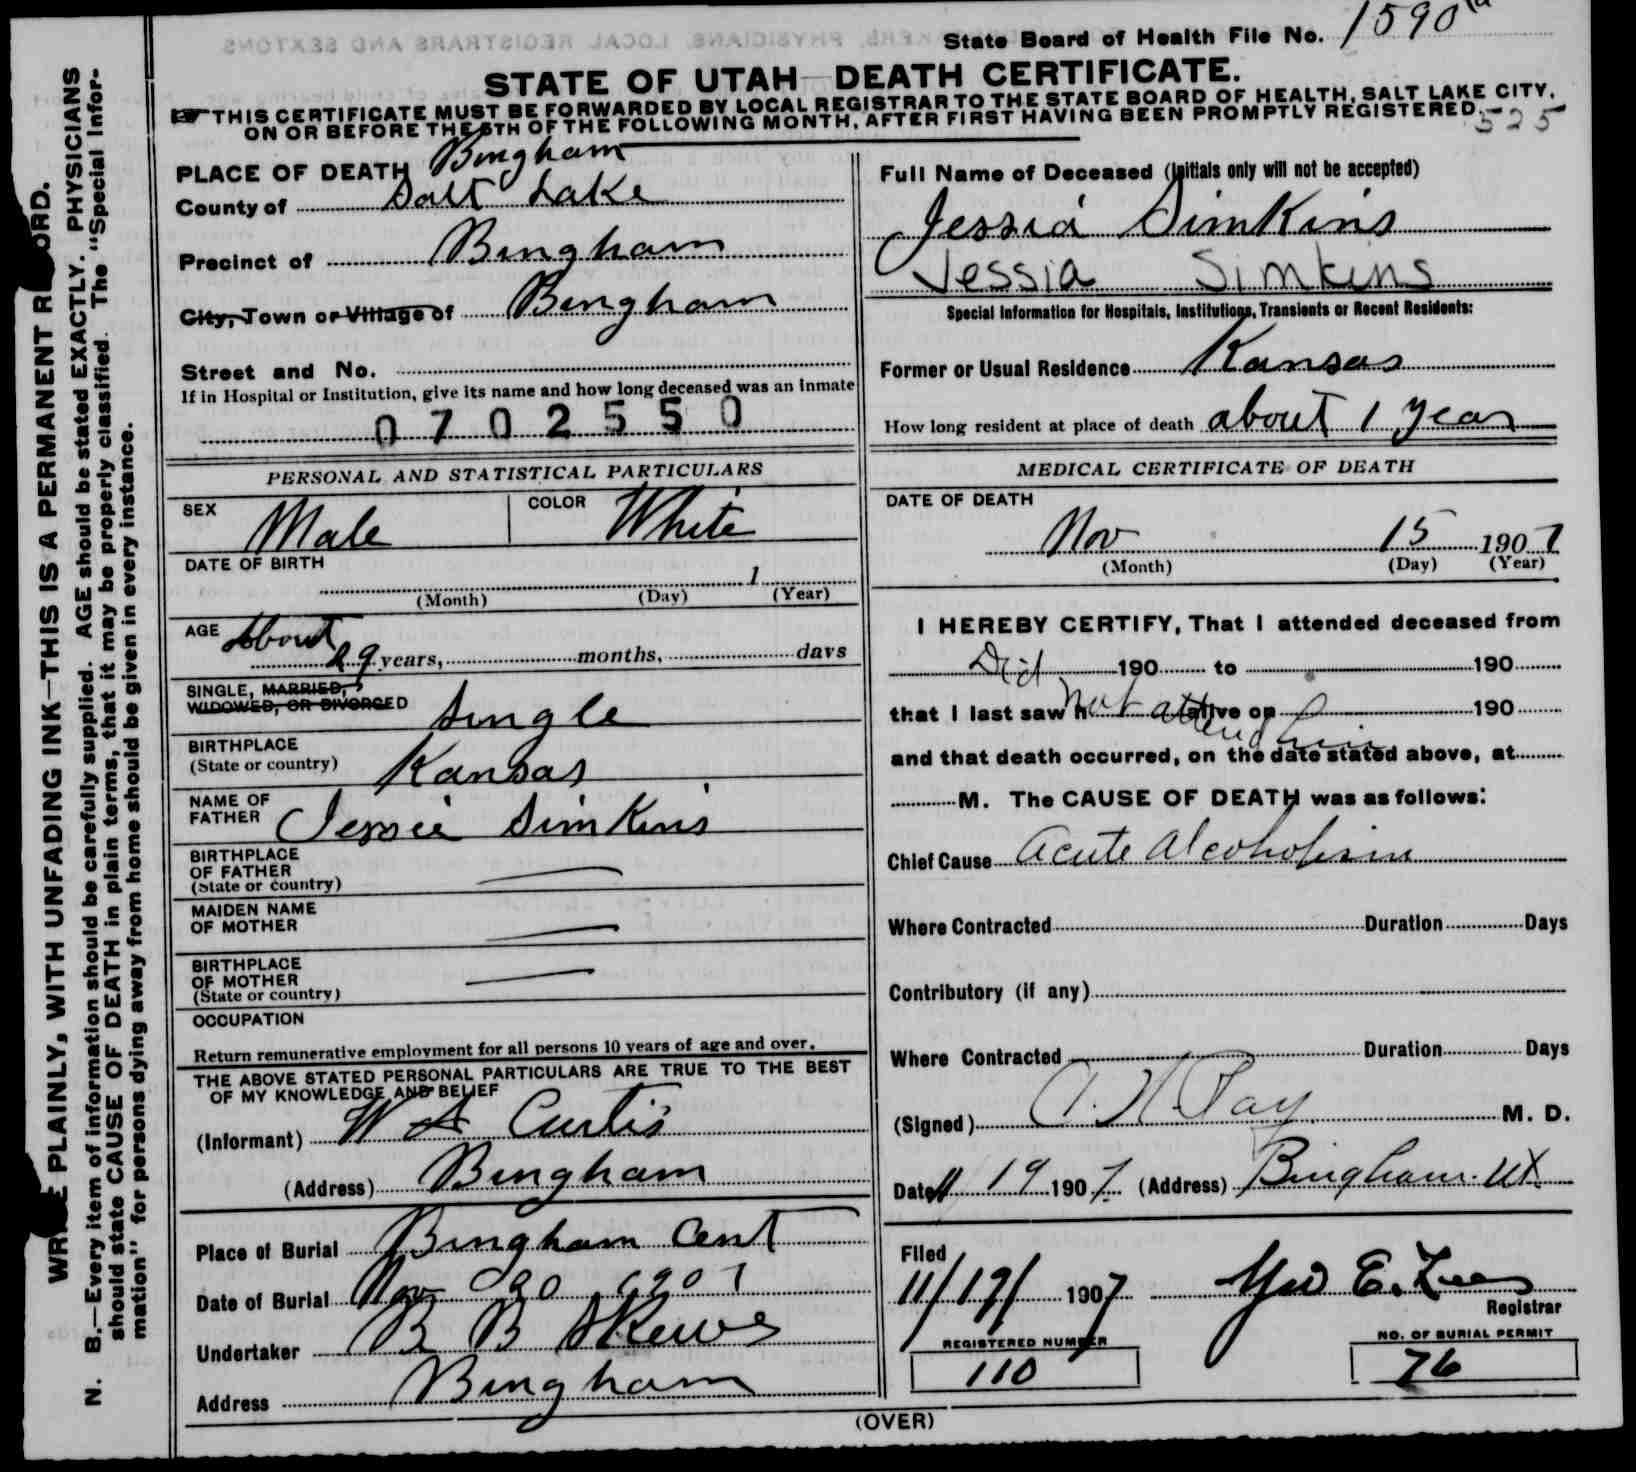 State Board of Health File No. 1590
STATE OF UTAH DEATH CERTIFICATE.
THIS CERTIFICATE MUST BE FORWARDED BY LOCAL REGISTRAR TO THE STATE BOARD OF HEALTH, SALT LAKE CITY,
ON OR BEFORE THE 5TH OF THE FOLLOWING MONTH, AFTER FIRST HAVING BEEN PROMPTLY REGISTERED.
525
PLACE OF DEATH Bingham
County of Salt Lake
Precinct of Bingham
City, Town or Village of Bingham
Street and No.
If in Hospital or Institution, give its name and how long deceased was an inmate
0702550
PERSONAL AND STATISTICAL PARTICULARS
SEX Male COLOR White
DATE OF BIRTH
1
(Month) (Day) (Year)
AGE About
29 years, months, days
SINGLE, MARRIED,
WIDOWED, OR DIVORCED Single
BIRTHPLACE
(State or country) Kansas
NAME OF
FATHER Jessie Simkins
BIRTHPLACE
OF FATHER
(State or country)
MAIDEN NAME
OF MOTHER
BIRTHPLACE
OF MOTHER
(State or country)
OCCUPATION
Return remunerative employment for all persons 10 years of age and over.
THE ABOVE STATED PERSONAL PARTICULARS ARE TRUE TO THE BEST
OF MY KNOWLEDGE AND BELIEF
(Informant) W A Curtis
(Address) Bingham
Place of Burial Bingham Cent
Date of Burial Nov 20 1907
Undertaker B B Skews
Address Bingham
Full Name of Deceased (Initials only will not be accepted)
Jessia Simkins
Jessia Simkins
Special Information for Hospitals, Institutions, Transients or Recent Residents:
Former or Usual Residence Kansas
How long resident at place of death about 1 year
MEDICAL CERTIFICATE OF DEATH
DATE OF DEATH
Nov 15 1907
(Month) (Day) (Year)
I HEREBY CERTIFY, That I attended deceased from
Did 190 to 190
that I last saw h alive on 190
not attend him
and that death occurred, on the date stated above, at
M. The CAUSE OF DEATH was as follows:
Chief Cause Acute Alcoholism
Where Contracted Duration Days
Contributory (if any)
Where Contracted Duration Days
(Signed) M. D.
Date 11 19 1907 (Address) Bingham Ut.
Filed
11/19/ 1907 Geo E.
Registrar
REGISTERED NUMBER
110
NO. OF BURIAL PERMIT
76
(OVER)
WRITE PLAINLY, WITH UNFADING INK—THIS IS A PERMANENT RECORD.
N. B.—Every item of information should be carefully supplied. AGE should be stated EXACTLY. PHYSICIANS
should state CAUSE OF DEATH in plain terms, that it may be properly classified. The "Special Infor-
mation" for persons dying away from home should be given in every instance.